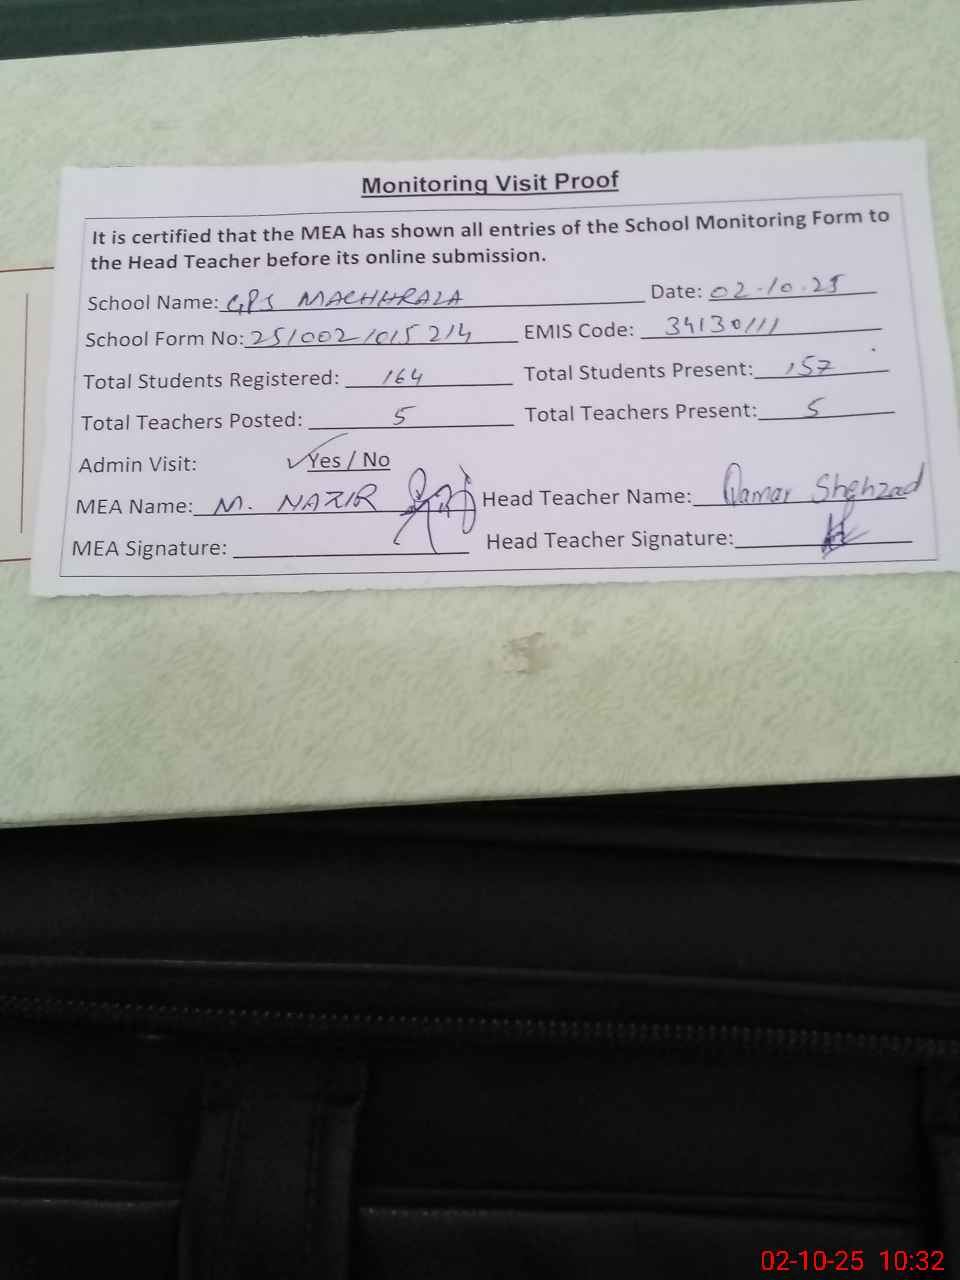 Monitoring Visit Proof
It is certified that the MEA has shown all entries of the School Monitoring Form to
the Head Teacher before its online submission.
School Name: GPS MACHHRALA Date: 02.10.25
School Form No: 251002/015214 EMIS Code: 34130111
Total Students Registered: 164 Total Students Present: 157
Total Teachers Posted: 5 Total Teachers Present: 5
Admin Visit: ✓Yes / No
MEA Name: M. NAZIR Head Teacher Name: Qamar Shehzad
MEA Signature: Head Teacher Signature:
02-10-25 10:32